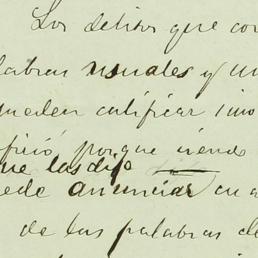 Los delitos que co
labras usuales y un
ueden calificar sino
firió, porque siendo
ue las dije
ede anunciar en a
de las palabras de